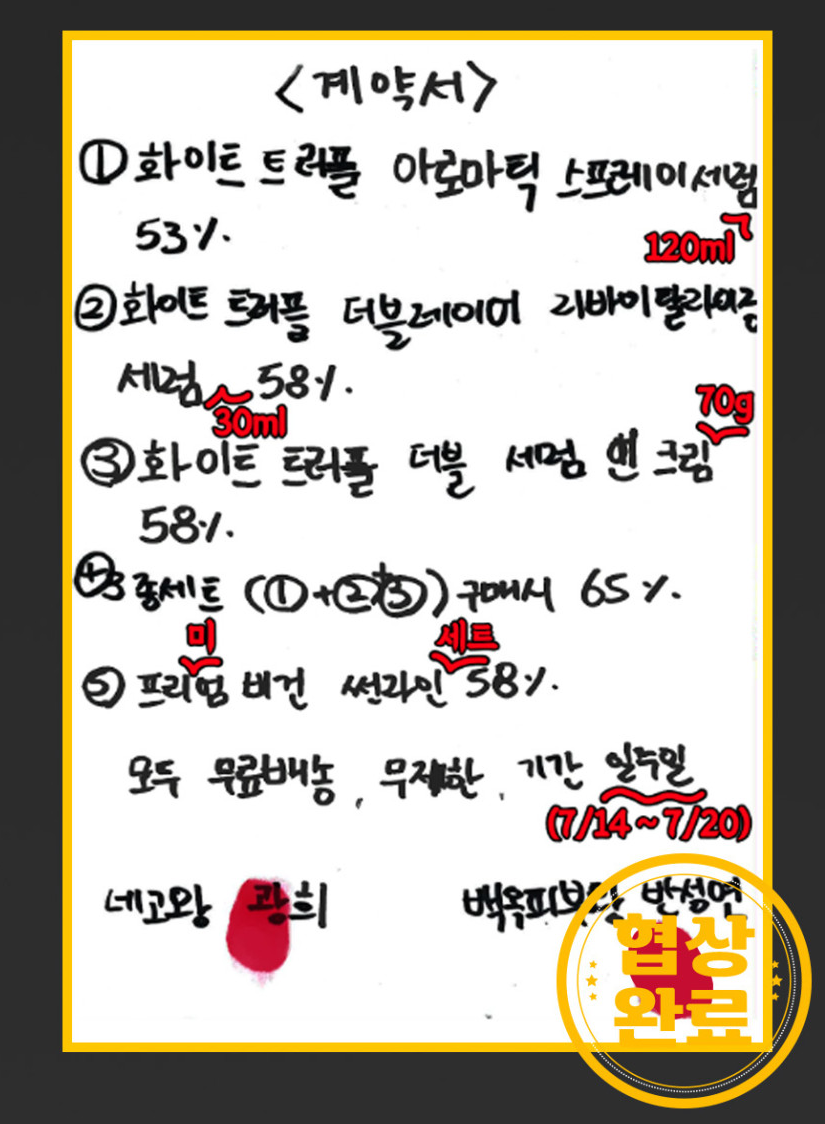 <계약서>
① 화이트 트러플 아로마틱 스프레이세럼
53%.
120ml
② 화이트 트러플 더블레이어 리바이탈라이징
세럼 58%.
30ml
70g
③ 화이트 트러플 더블 세럼 앤 크림
58%.
④ 3종세트 (①+②+③) 구매시 65%.
미
세트
⑤ 프리엄 비건 썬라인 58%.
모두 무료배송, 무제한, 기간 일주일
(7/14~7/20)
네고왕 광희
백옥피부 반성연
협상
완료